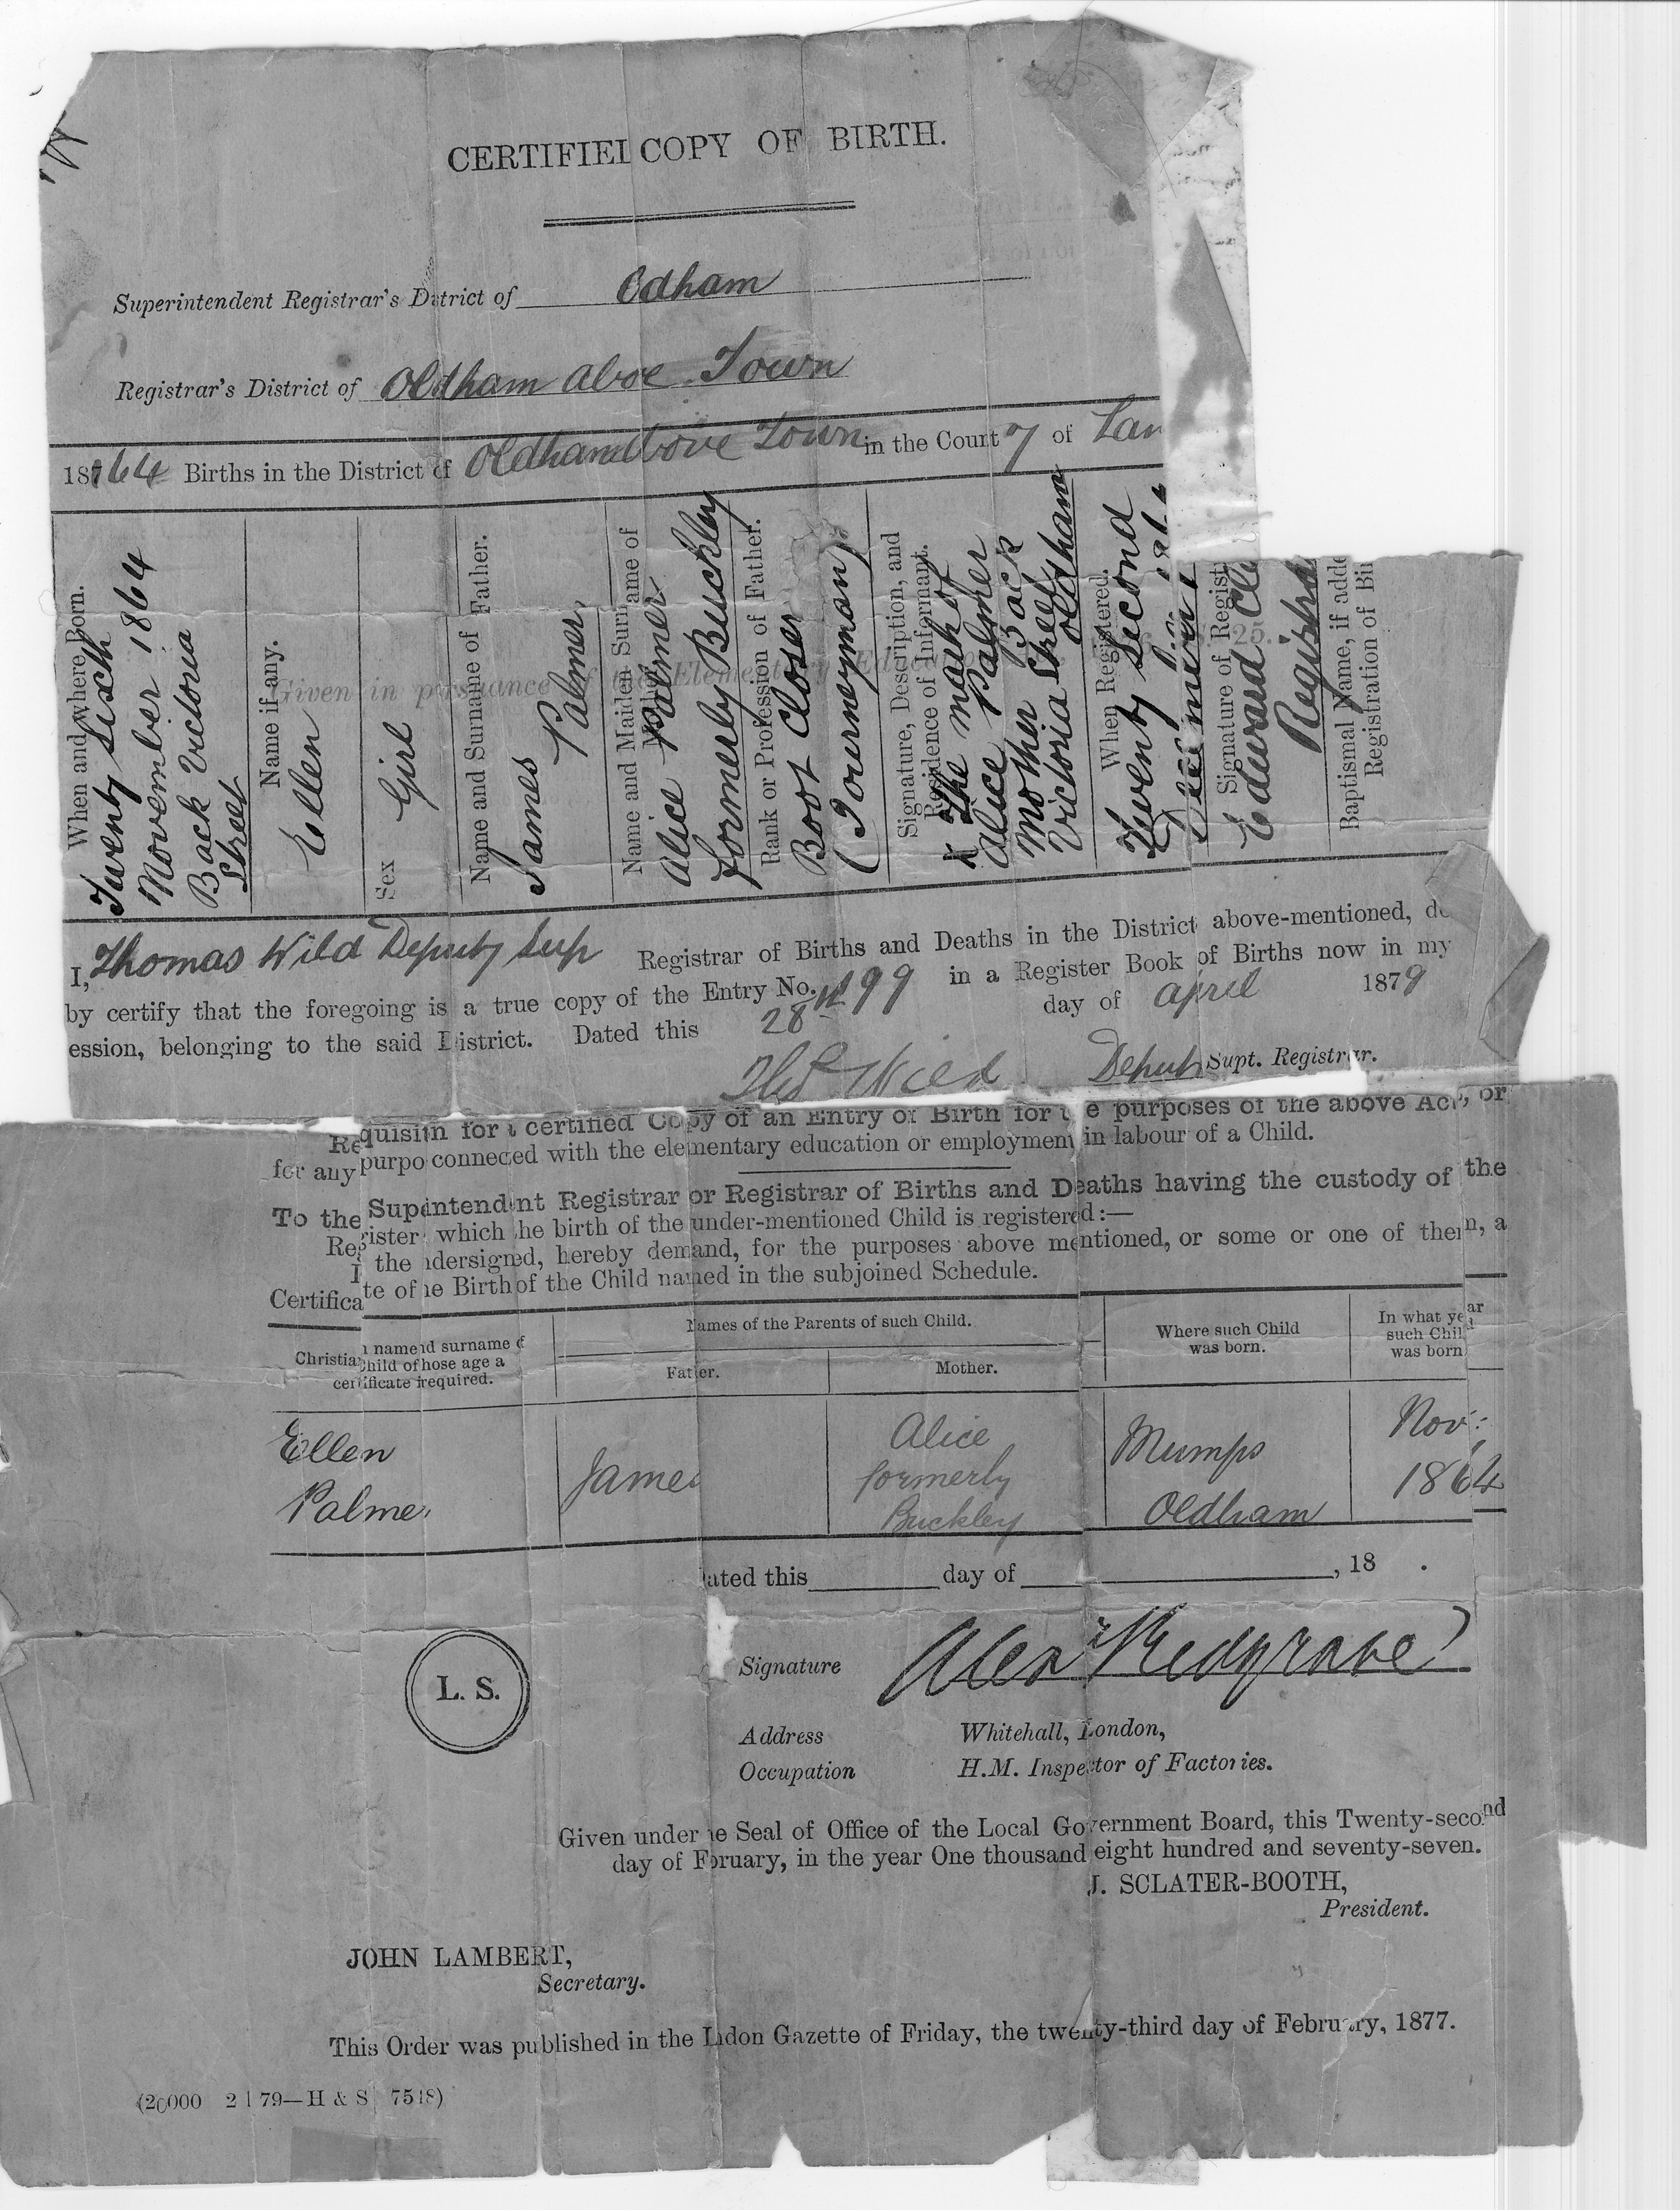 CERTIFIED COPY OF BIRTH.
Superintendent Registrar's District of Odham
Registrar's District of Oldham aboe Town
1864 Births in the District of Oldham above Town in the County of Lan
When and where Born.
Twenty Sixth
November 1864
Back Victoria
Street
Name if any.
Ellen
Sex
Girl
Name and Surname of Father.
James Palmer
Name and Maiden Surname of
Mother.
Alice Palmer
formerly Buckley
Rank or Profession of Father.
Boot Closer
(Journeyman)
Signature, Description, and
Residence of Informant.
X The mark of
Alice Palmer
Mother Back
Victoria Street
Oldham
When Registered.
Twenty Second
December
Signature of Regist
Edward Cle
Registra
Baptismal Name, if adde
Registration of Bi
Given in pursuance of the Elementary Education 25.
I, Thomas Wild Deputy Sup Registrar of Births and Deaths in the District above-mentioned, do
by certify that the foregoing is a true copy of the Entry No. 499 in a Register Book of Births now in my
ession, belonging to the said District. Dated this 28th day of april 1879
Thos Wild Deputy Supt. Registrar.
Requisition for a certified Copy of an Entry of Birth for the purposes of the above Act, or
for any purpo connected with the elementary education or employment in labour of a Child.
To the Supintendent Registrar or Registrar of Births and Deaths having the custody of the
Register which he birth of the under-mentioned Child is registered:—
I the undersigned, hereby demand, for the purposes above mentioned, or some or one of them, a
Certificate of he Birth of the Child named in the subjoined Schedule.
Christian name nd surname of
Child of hose age a
certificate required.
Names of the Parents of such Child.
Father.
Mother.
Where such Child
was born.
In what year
such Child
was born
Ellen
Palmer
James
Alice
formerly
Buckley
Mumps
Oldham
Nov:
1864
Dated this day of , 18 .
L. S.
Signature Alex Redgrave
Address Whitehall, London,
Occupation H.M. Inspector of Factories.
Given under he Seal of Office of the Local Government Board, this Twenty-second
day of Fbruary, in the year One thousand eight hundred and seventy-seven.
J. SCLATER-BOOTH,
President.
JOHN LAMBERT,
Secretary.
This Order was published in the London Gazette of Friday, the twenty-third day of February, 1877.
(20000 2 | 79—H & S 7518)